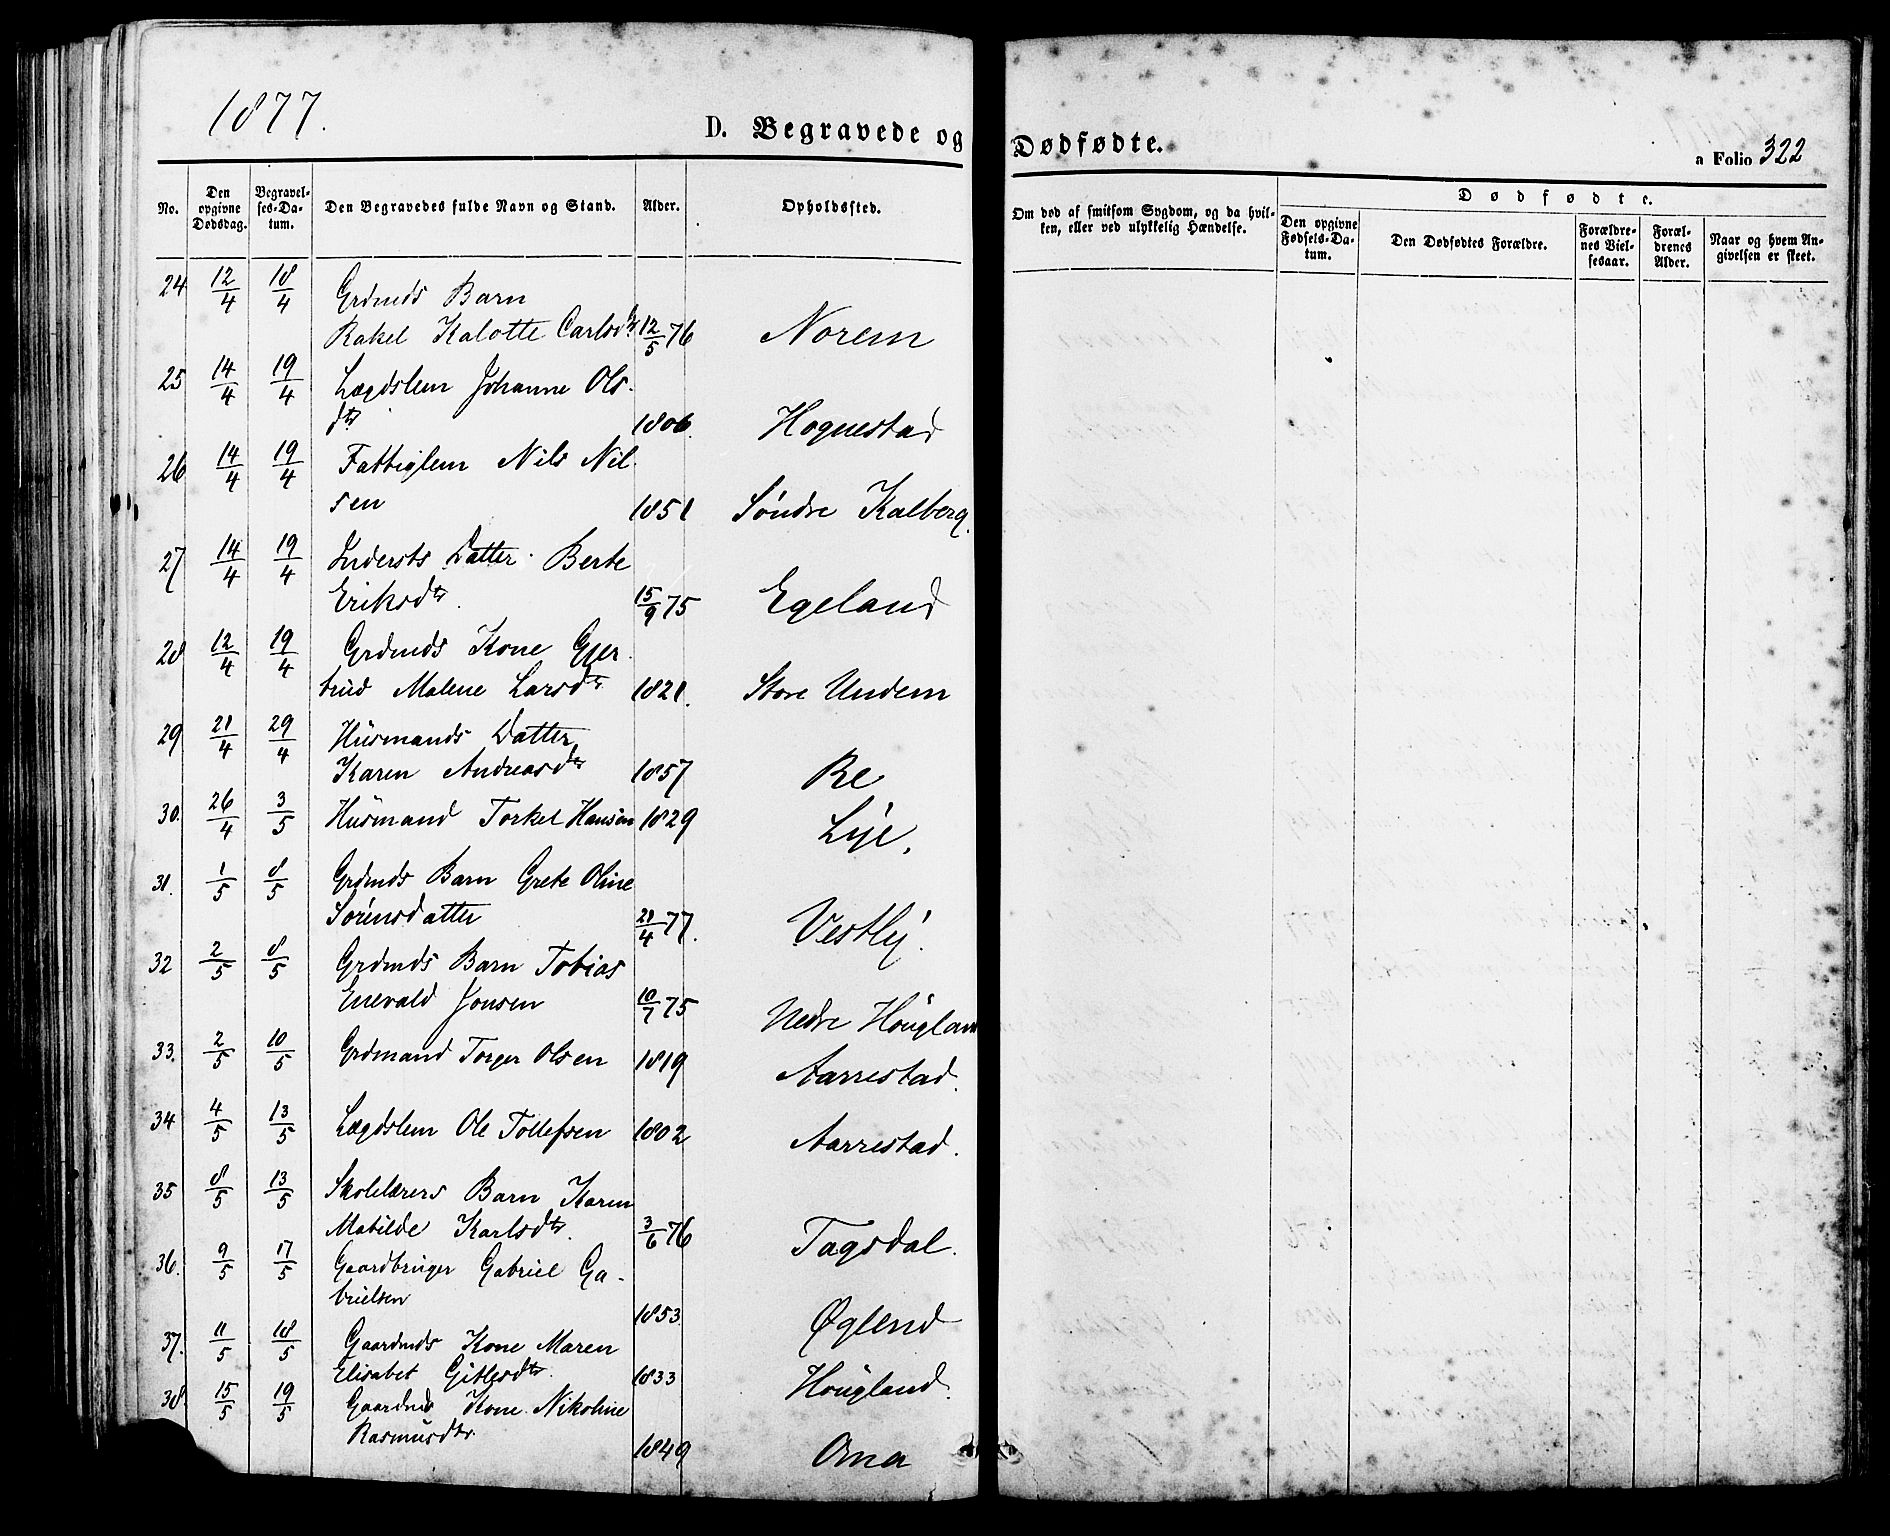 1877.
D. Begravede og Dødfødte.
a Folio 322
No. | Den opgivne Dødsdag. | Begravelses-Datum. | Den Begravedes fulde Navn og Stand. | Alder. | Opholdssted. | Om død af smitsom Sygdom, og da hvilken, eller ved ulykkelig Hændelse. | Dødfødte. | Den opgivne Fødsels-Datum. | Den Dødfødtes Forældre. | Forældrenes Vielsesaar. | Forældrenes Alder. | Naar og hvem Angivelsen er skeet.
24 12/4 18/4 Grdmds Barn
Rakel Kalotte Carlsdtr 12/5 76 Norem
25 14/4 19/4 Lægdslem Johanne Ols-
dtr 1806. Hognestad
26 14/4 19/4 Fattiglem Nils Nil-
sen 1851 Söndre Kalberg.
27 14/4 19/4 Indersts Datter Berte
Eriksdtr. 15/9 75 Egeland
28 12/4 19/4 Grdmds Kone Gjer-
trud Malene Larsdtr 1821. Store Undem
29 21/4 29/4 Husmands Datter,
Karen Andreasdtr 1857 Re
30. 26/4 3/5 Husmand Torkel Hansen 1829 Lye.
31. 1/5 8/5 Grdmds Barn Grete Oline
Sörensdatter 21/4 77. Vestly.
32 2/5 8/5 Grdmds Barn Tobias
Enevald Jonsen 10/7 75 Nedre Hougland
33. 2/5 10/5 Grdmand Torger Olsen 1819 Aarrestad.
34 4/5 13/5 Lægdslem Ole Tollefsen 1802 Aarrestad.
35 8/5 13/5 Skolelærers Barn Karen
Matilde Karlsdtr. 3/6 76 Tagsdal.
36. 9/5 17/5 Gaardbruger Gabriel Ga-
brielsen 1853 Øglend
37. 11/5 18/5 Gaardmds Kone Maren
Elisabet Gitlesdtr. 1833 Hougland.
38. 15/5 19/5 Gaardmds Kone Nikoline
Rasmusdtr. 1849 Oma